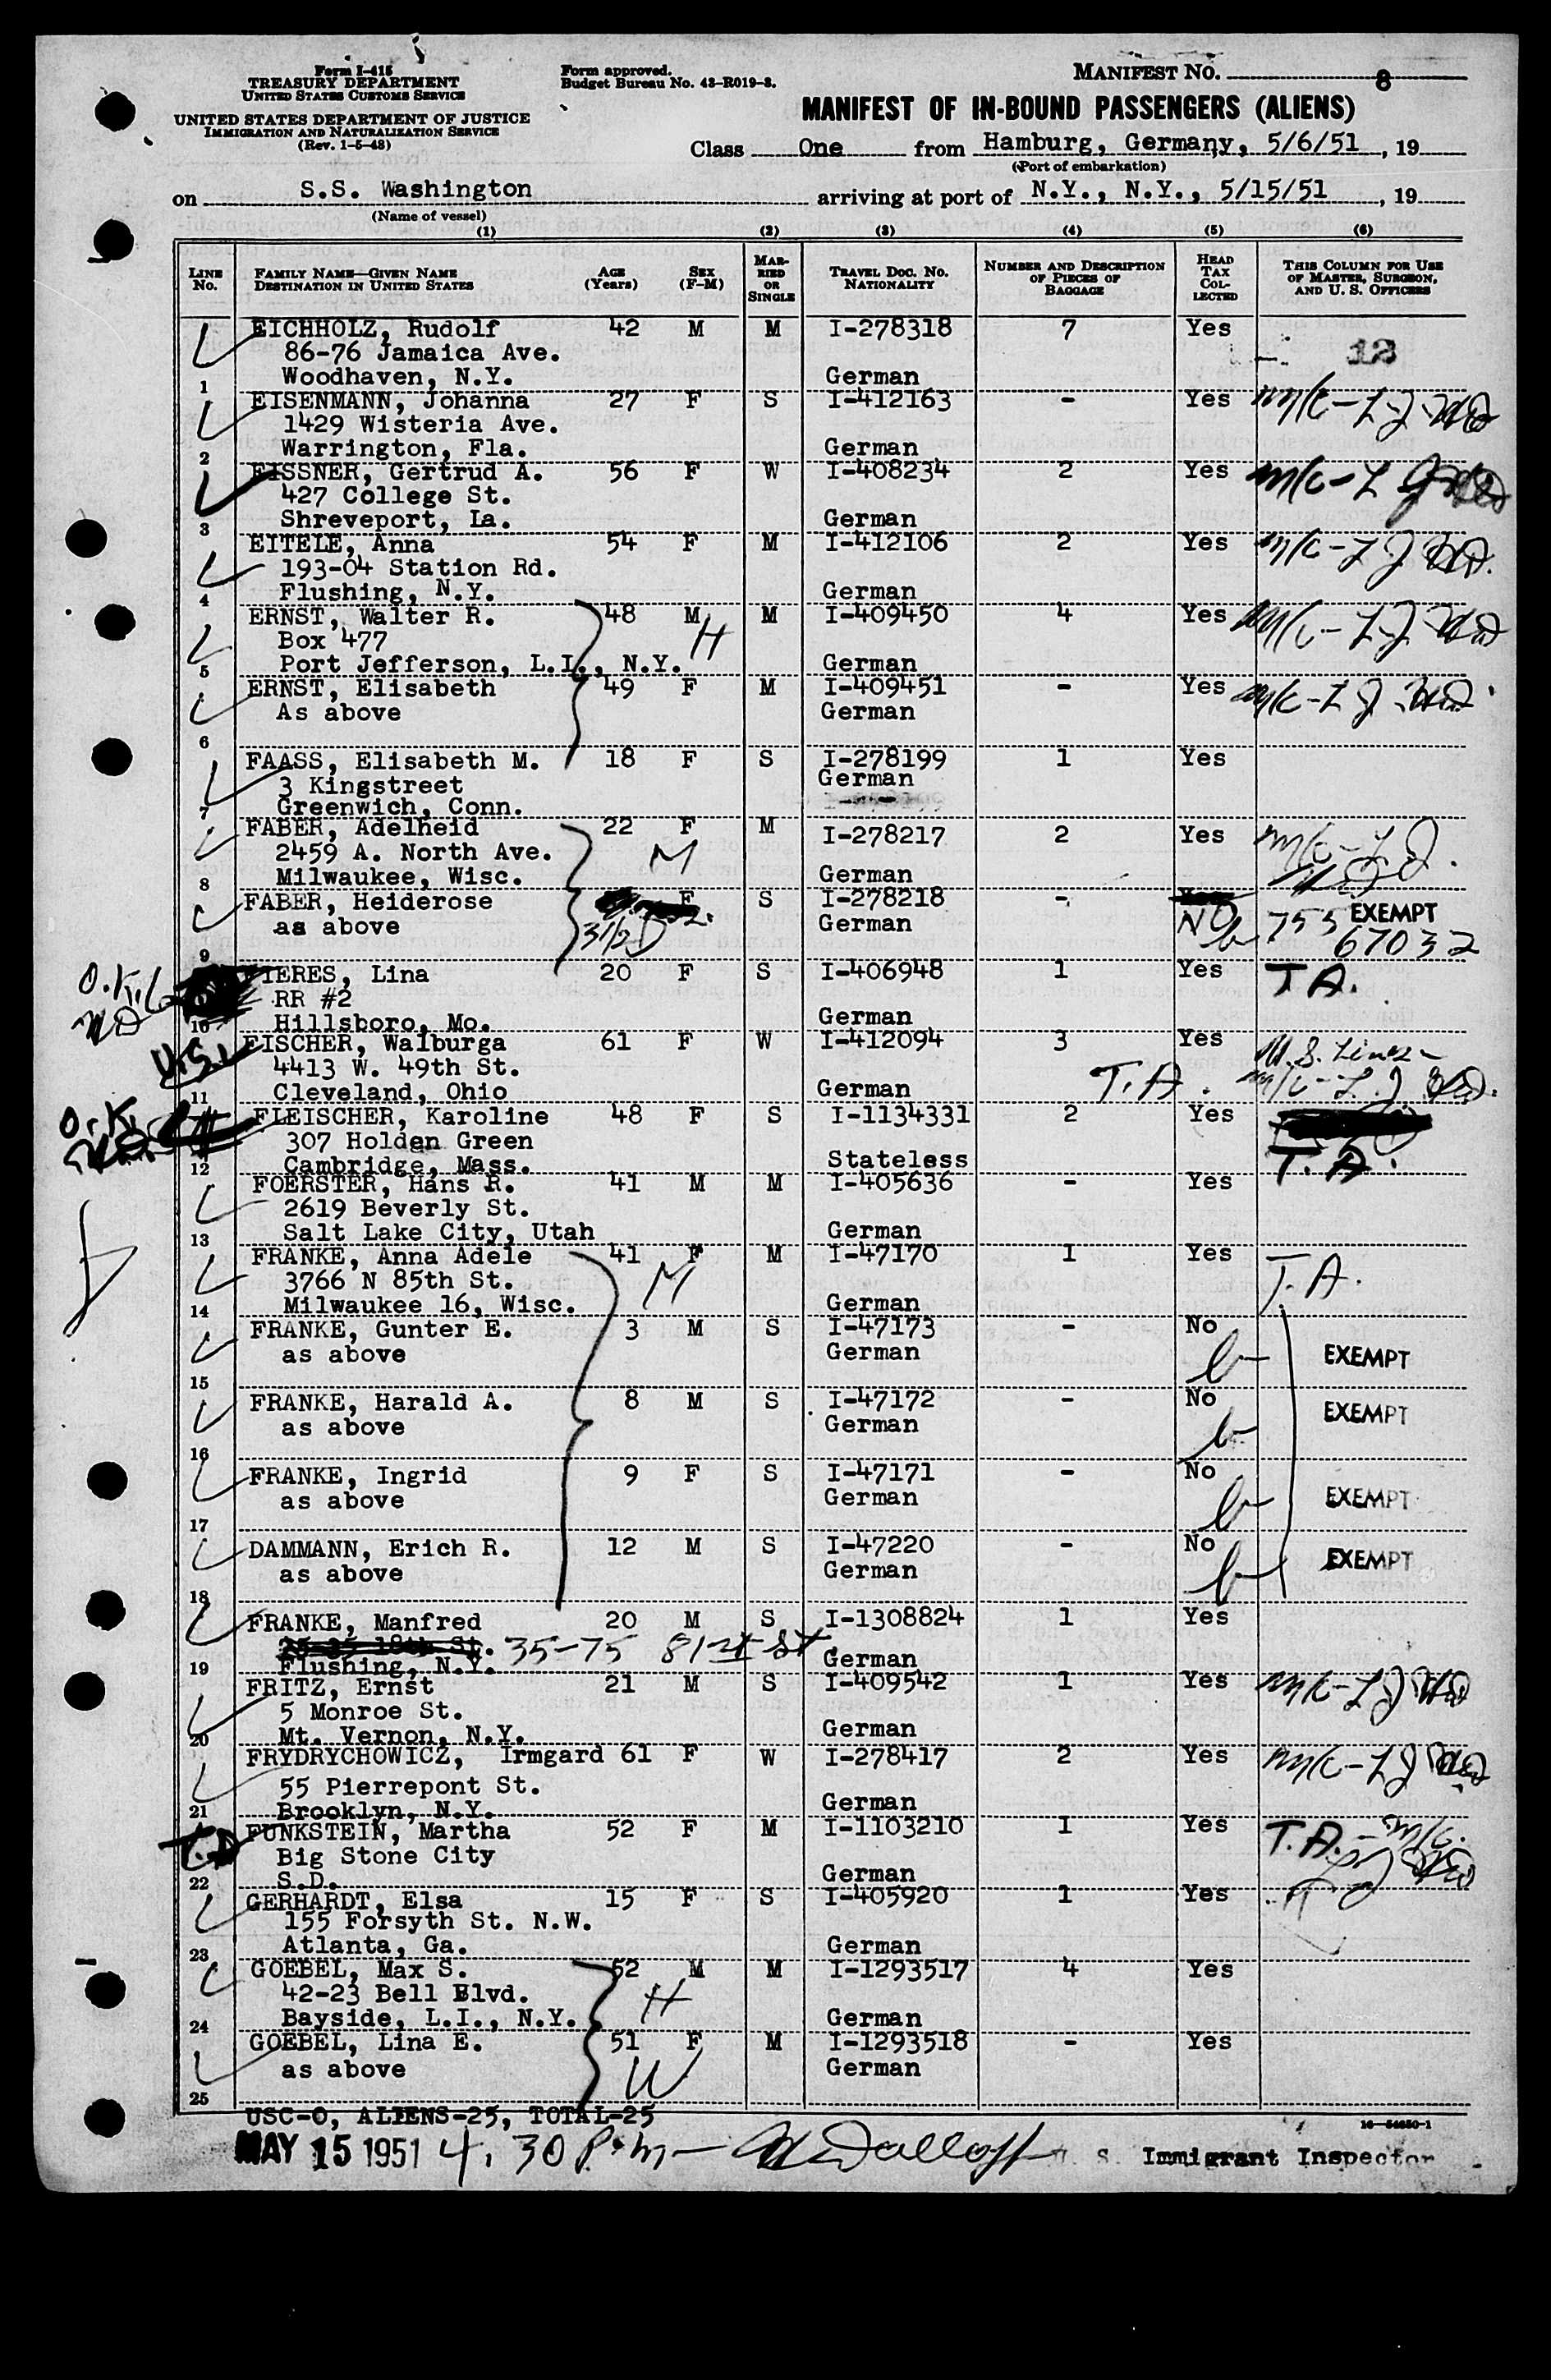 Form I-415
TREASURY DEPARTMENT
UNITED STATES CUSTOMS SERVICE
UNITED STATES DEPARTMENT OF JUSTICE
IMMIGRATION AND NATURALIZATION SERVICE
(Rev. 1-5-48)
Form approved.
Budget Bureau No. 43-R019-3.
MANIFEST No. 8
MANIFEST OF IN-BOUND PASSENGERS (ALIENS)
Class One from Hamburg, Germany, 5/6/51, 19
(Port of embarkation)
on S.S. Washington arriving at port of N.Y., N.Y., 5/15/51, 19
(Name of vessel)
(1) (2) (3) (4) (5) (6)
LINE No. FAMILY NAME—GIVEN NAME DESTINATION IN UNITED STATES AGE (Years) SEX (F-M) MARRIED OR SINGLE TRAVEL DOC. NO. NATIONALITY NUMBER AND DESCRIPTION OF PIECES OF BAGGAGE HEAD TAX COLLECTED THIS COLUMN FOR USE OF MASTER, SURGEON, AND U. S. OFFICERS
EICHHOLZ, Rudolf 42 M M I-278318 7 Yes
86-76 Jamaica Ave. 12
1 Woodhaven, N.Y. German
EISENMANN, Johanna 27 F S I-412163 - Yes
1429 Wisteria Ave.
2 Warrington, Fla. German
EISSNER, Gertrud A. 56 F W I-408234 2 Yes
427 College St.
3 Shreveport, La. German
EITELE, Anna 54 F M I-412106 2 Yes
193-04 Station Rd.
4 Flushing, N.Y. German
ERNST, Walter R. 48 M M I-409450 4 Yes
Box 477 H
5 Port Jefferson, L.I., N.Y. German
ERNST, Elisabeth 49 F M I-409451 - Yes
As above German
6
FAASS, Elisabeth M. 18 F S I-278199 1 Yes
3 Kingstreet German
7 Greenwich, Conn.
FABER, Adelheid 22 F M I-278217 2 Yes
2459 A. North Ave. M
8 Milwaukee, Wisc. German
FABER, Heiderose F S I-278218 -
as above 3 1/2 German NO 755 EXEMPT
9 67032
O.K. FIERES, Lina 20 F S I-406948 1 Yes T.A.
RR #2
10 Hillsboro, Mo. German
U.S. FISCHER, Walburga 61 F W I-412094 3 Yes U.S. Lines
4413 W. 49th St. T.A.
11 Cleveland, Ohio German
O.K. FLEISCHER, Karoline 48 F S I-1134331 2 Yes
307 Holden Green
12 Cambridge, Mass. Stateless T.A.
FOERSTER, Hans R. 41 M M I-405636 - Yes
2619 Beverly St.
13 Salt Lake City, Utah German
FRANKE, Anna Adele 41 F M I-47170 1 Yes T.A.
3766 N 85th St. M
14 Milwaukee 16, Wisc. German
FRANKE, Gunter E. 3 M S I-47173 - No
as above German EXEMPT
15
FRANKE, Harald A. 8 M S I-47172 - No EXEMPT
as above German
16
FRANKE, Ingrid 9 F S I-47171 - No
as above German EXEMPT
17
DAMMANN, Erich R. 12 M S I-47220 - No EXEMPT
as above German
18
FRANKE, Manfred 20 M S I-1308824 1 Yes
35-75 81st St.
19 Flushing, N.Y. German
FRITZ, Ernst 21 M S I-409542 1 Yes
5 Monroe St.
20 Mt. Vernon, N.Y. German
FRYDRYCHOWICZ, Irmgard 61 F W I-278417 2 Yes
55 Pierrepont St.
21 Brooklyn, N.Y. German
FUNKSTEIN, Martha 52 F M I-1103210 1 Yes T.A.
Big Stone City
22 S.D. German
GERHARDT, Elsa 15 F S I-405920 1 Yes
155 Forsyth St. N.W.
23 Atlanta, Ga. German
GOEBEL, Max S. 52 M M I-1293517 4 Yes
42-23 Bell Blvd. H
24 Bayside, L.I., N.Y. German
GOEBEL, Lina E. 51 F M I-1293518 - Yes
as above W German
25
USC-0, ALIENS-25, TOTAL-25
MAY 15 1951 4:30 P.m. U. S. Immigrant Inspector